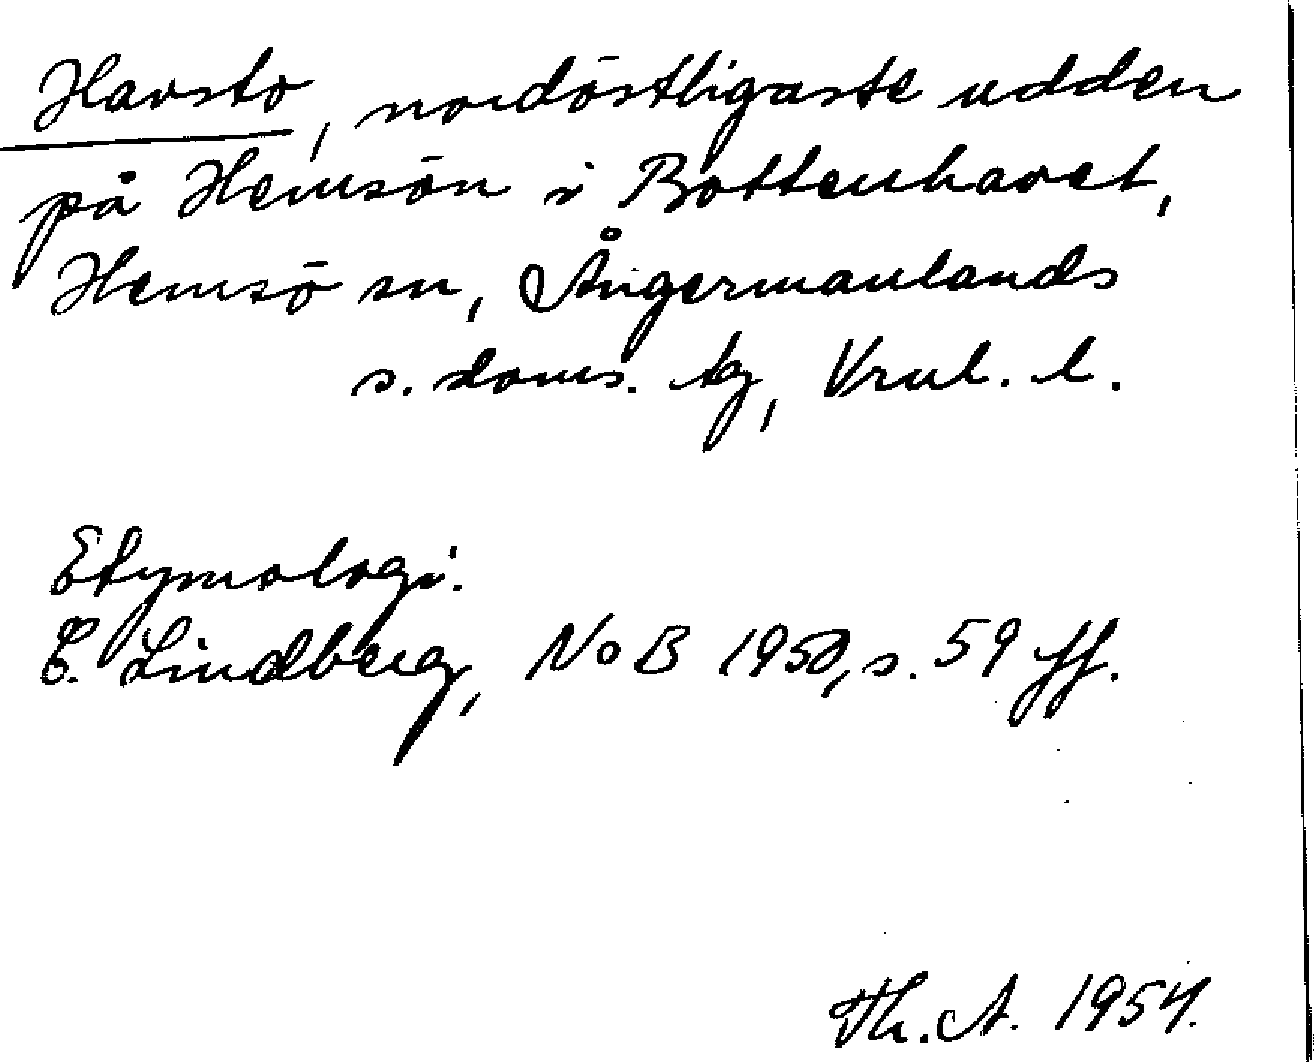 Havsto, nordöstligaste udden
på Hemsön i Bottenhavet,
Hemsö sn, Ångermanlands
s. doms. tg, Vrnl. l.
Etymologi.
E. Lindberg, NoB 1950, s. 59 ff.
Th. A. 1954.